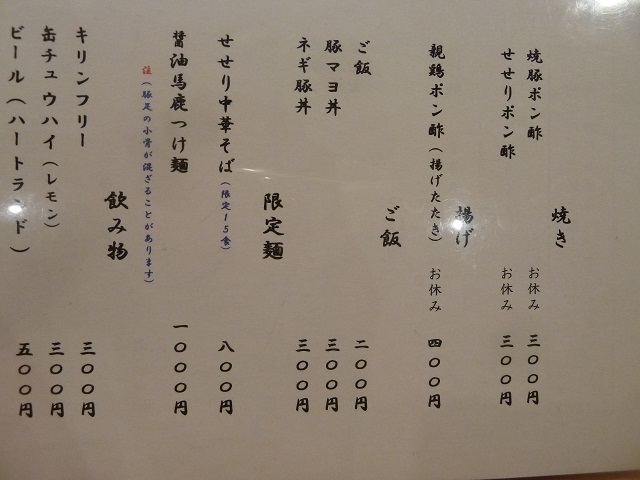 焼き
焼豚ポン酢 お休み 三〇〇円
せせりポン酢 お休み 三〇〇円
揚げ
親鶏ポン酢（揚げたたき） お休み 四〇〇円
ご飯
ご飯 二〇〇円
豚マヨ丼 三〇〇円
ネギ豚丼 三〇〇円
限定麺
せせり中華そば（限定１５食） 八〇〇円
醤油馬鹿つけ麺 一〇〇〇円
注（豚足の小骨が混ざることがあります）
飲み物
キリンフリー 三〇〇円
缶チュウハイ（レモン） 三〇〇円
ビール（ハートランド） 五〇〇円